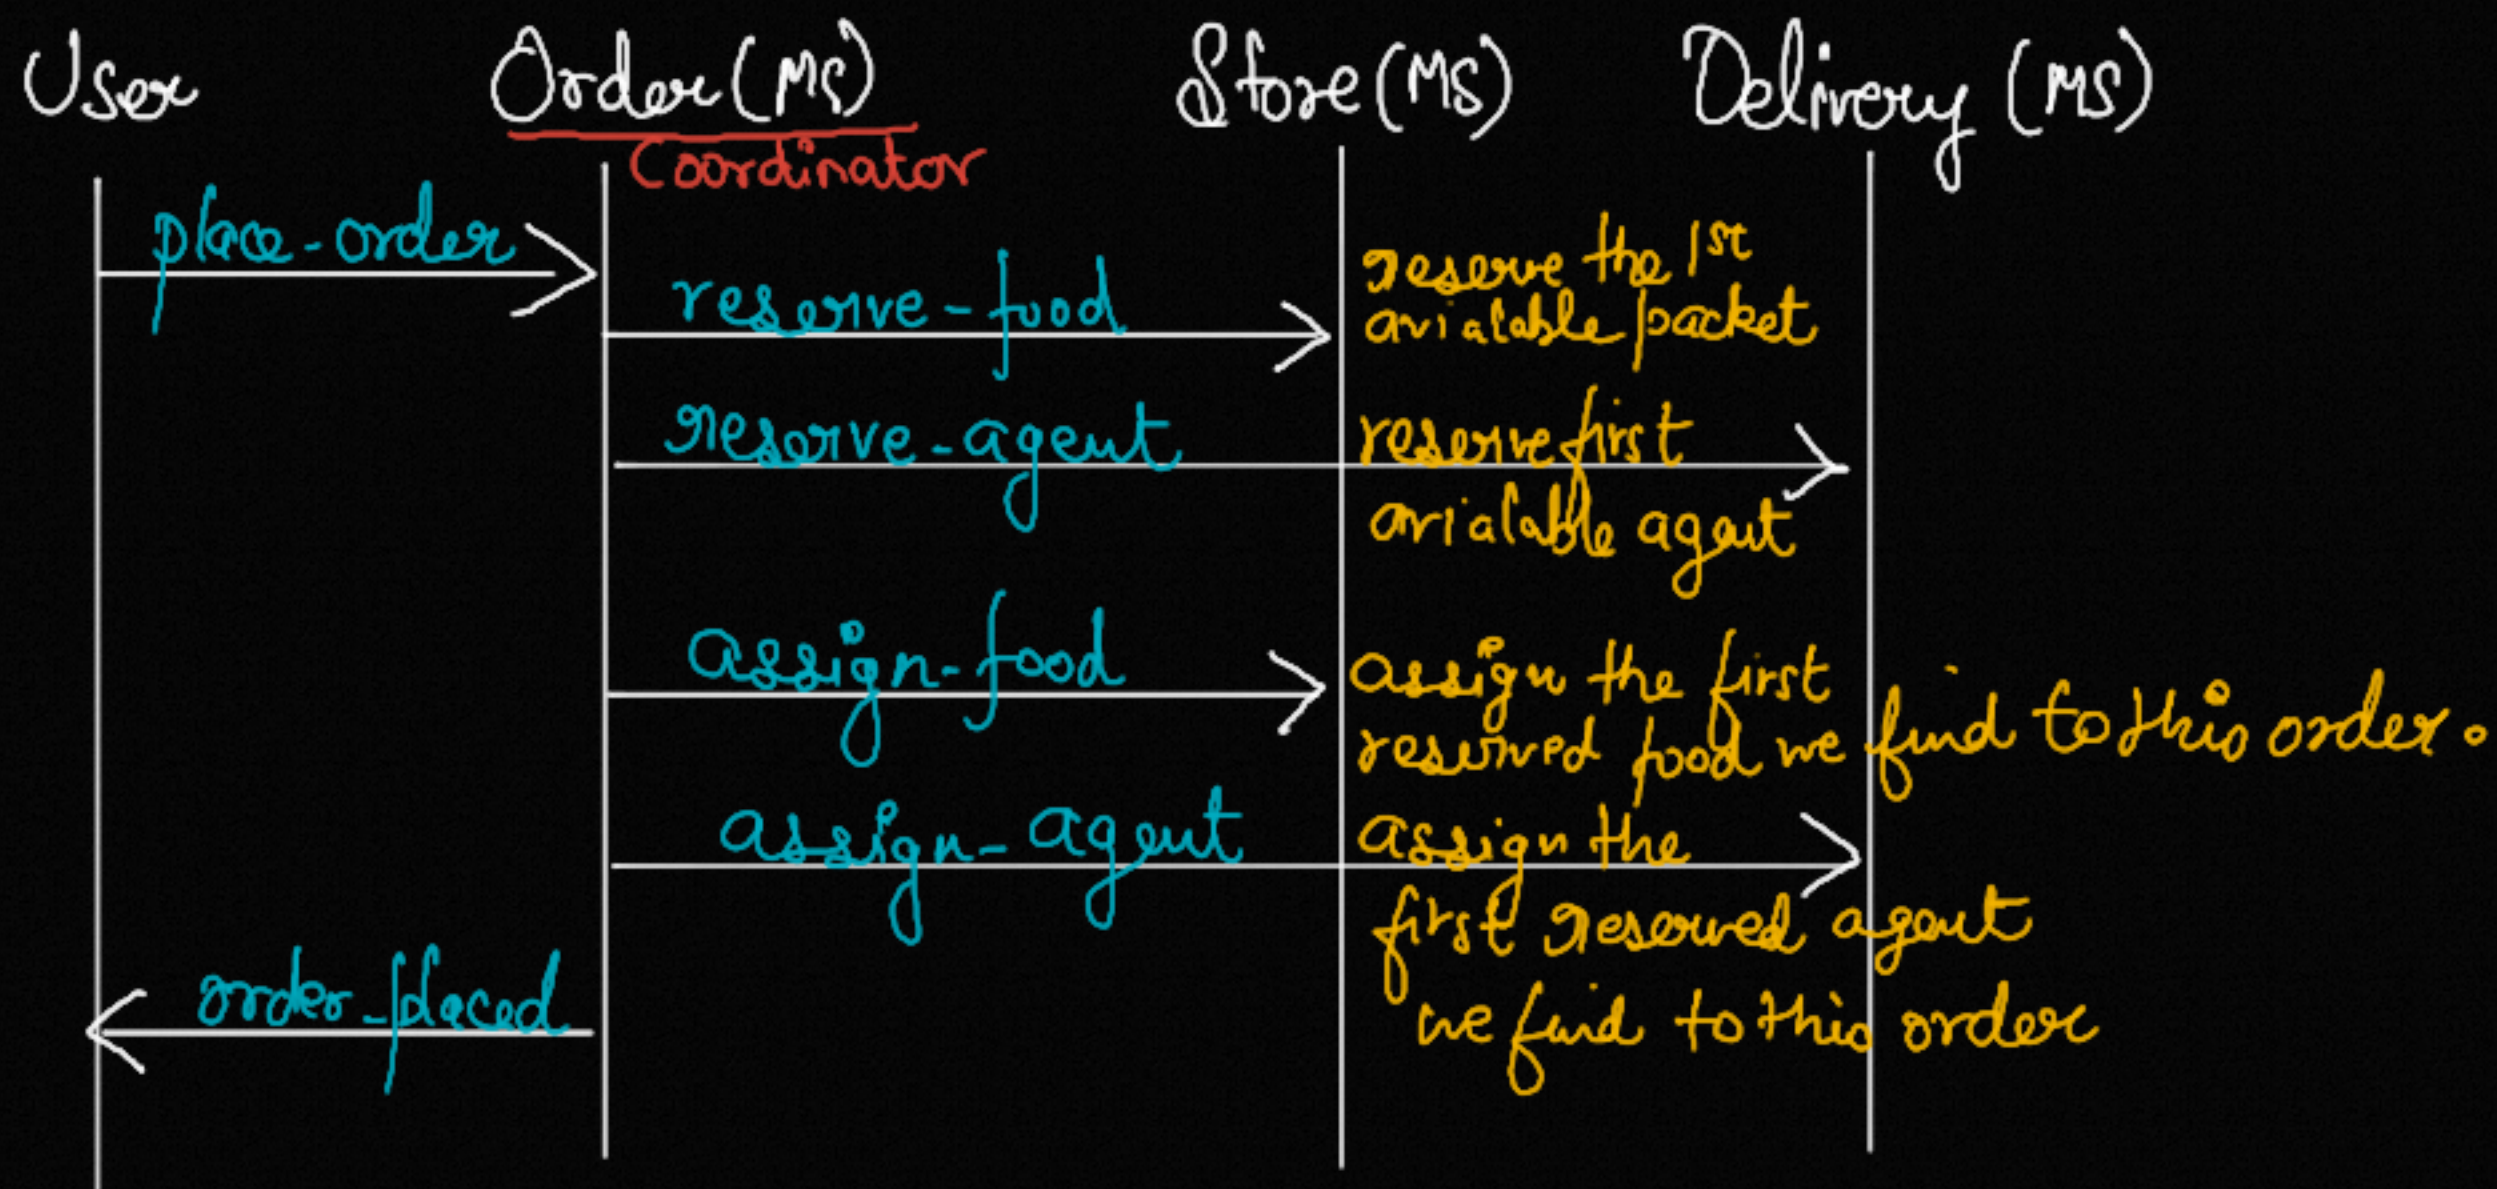 User
Order (MS)
Store (MS)
Delivery (MS)
Coordinator
place-order
reserve-food
reserve the 1st
avialable packet
reserve-agent
reserve first
avialable agent
assign-food
assign the first
reserved food we find to this order.
assign-agent
assign the
first reserved agent
we find to this order
order-placed